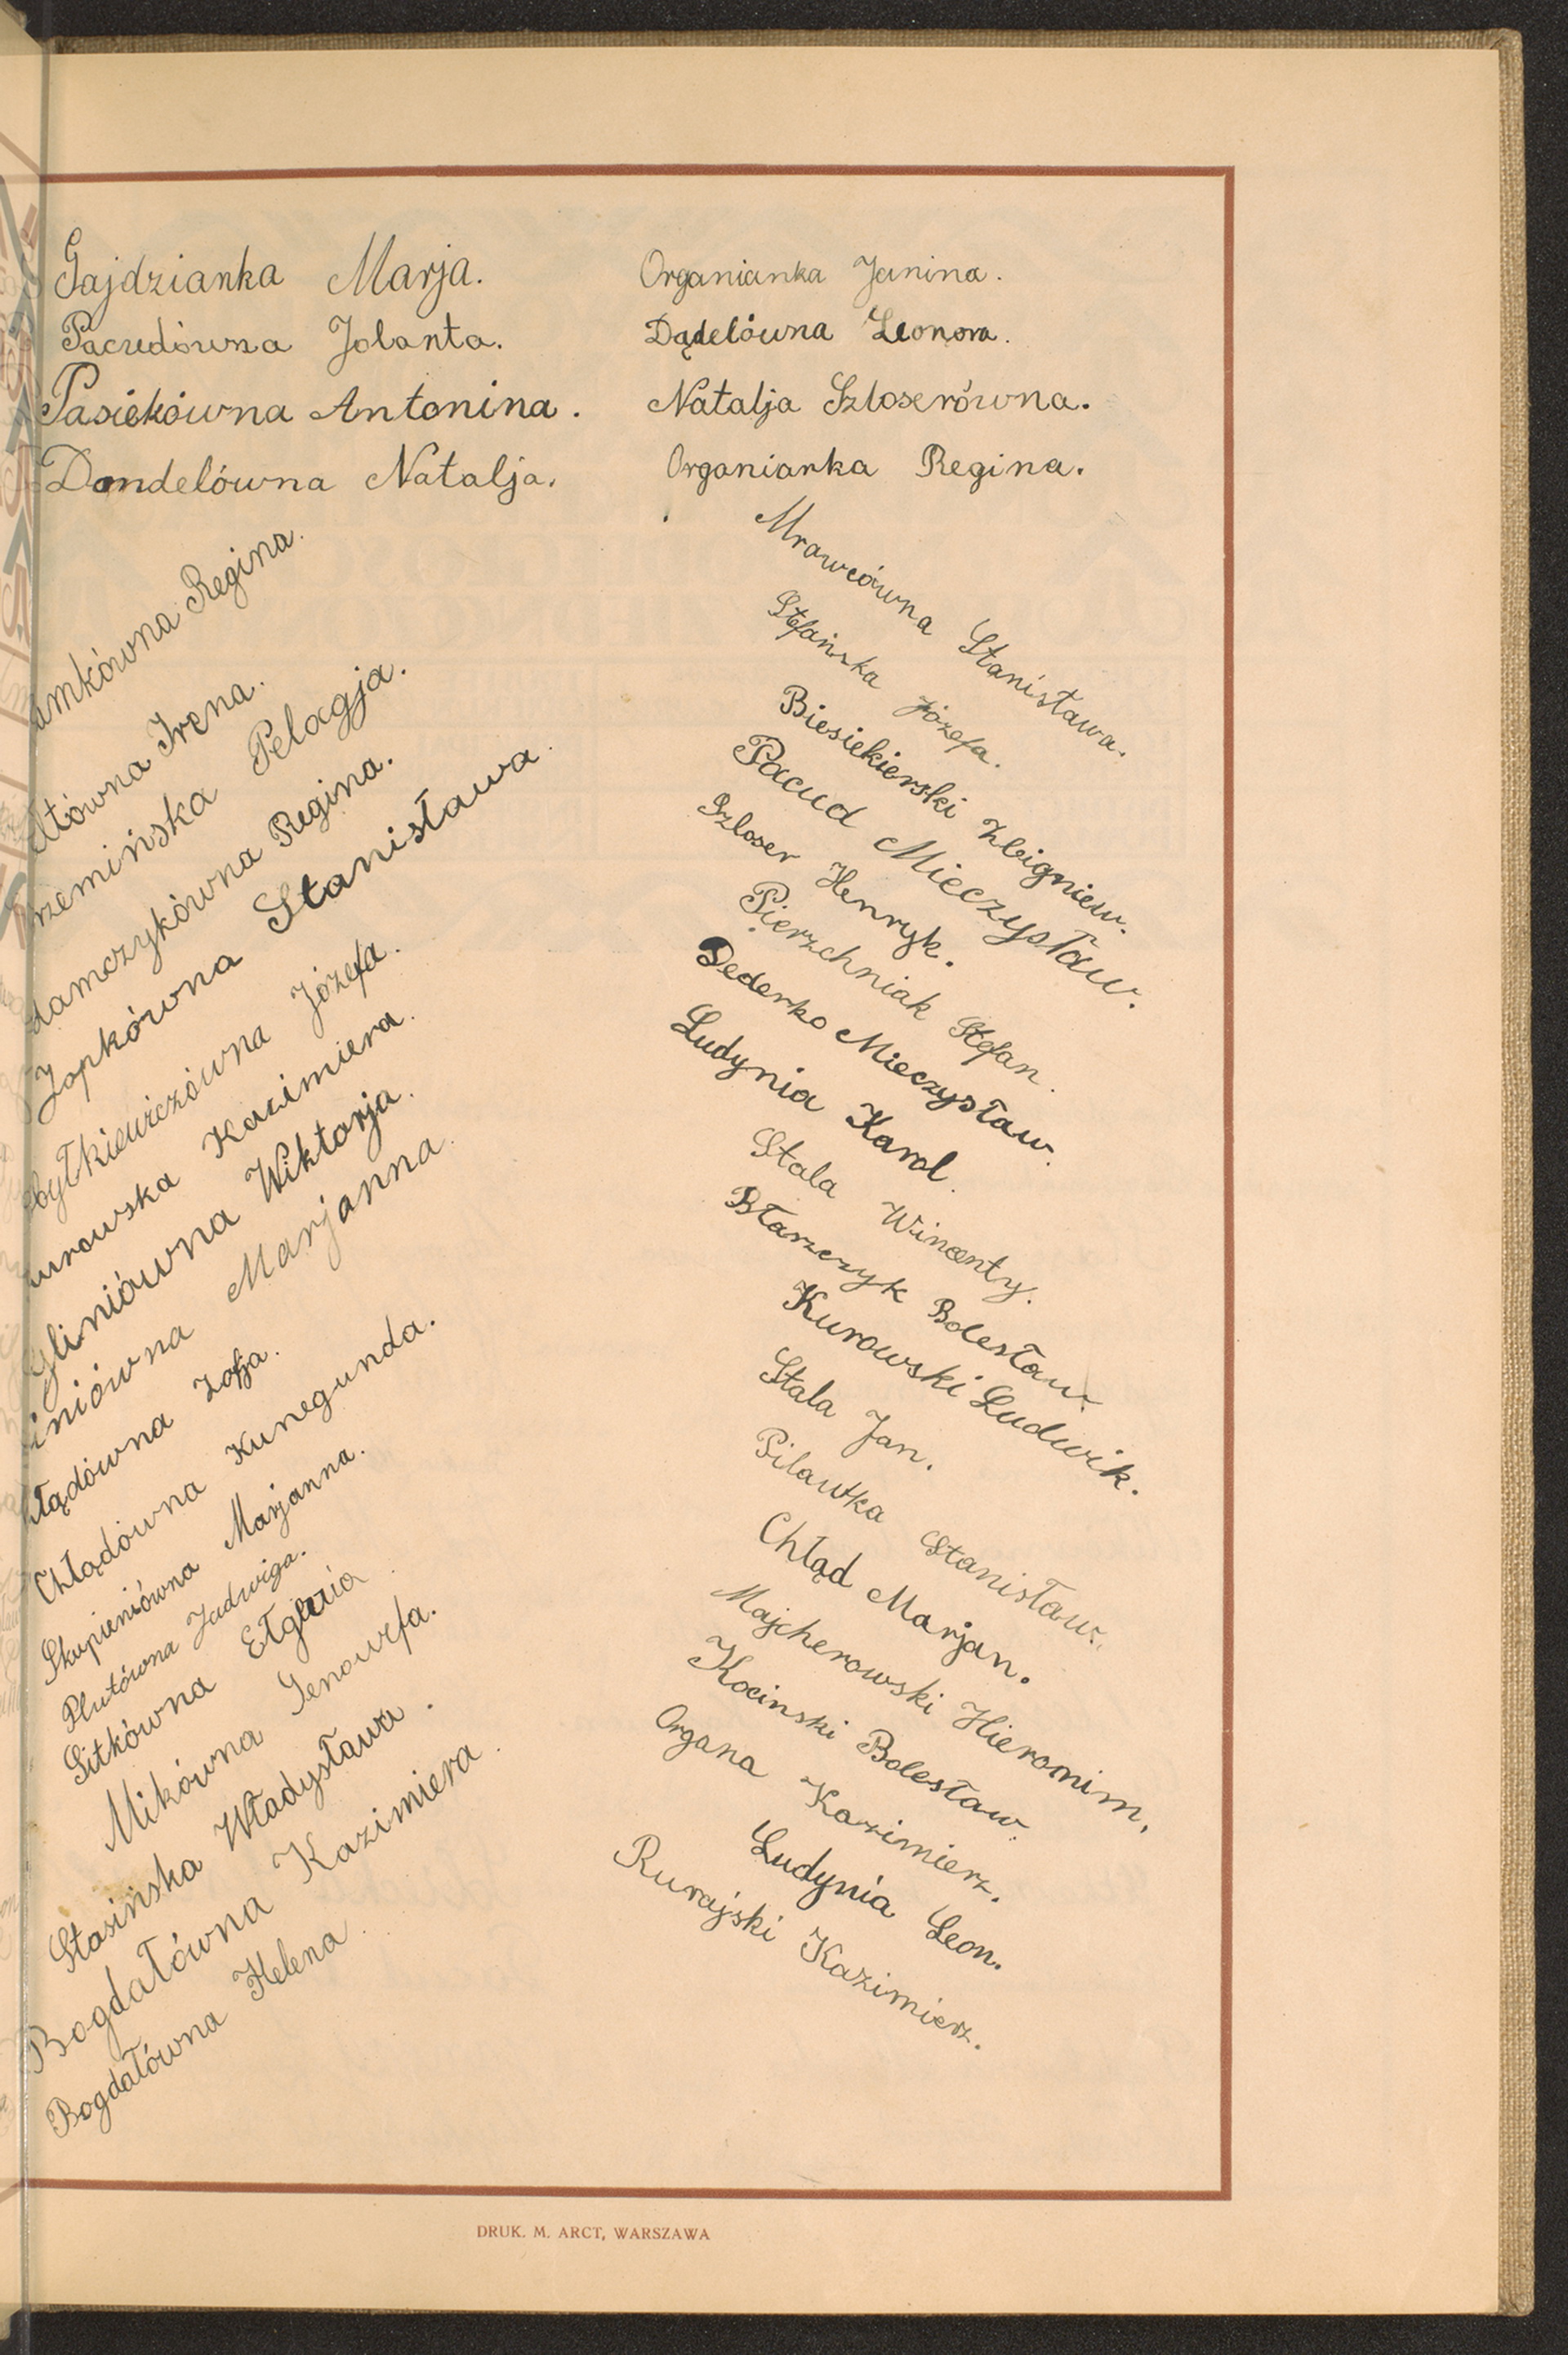 Gajdzianka Marja.
Pacudówna Jolanta.
Pasiekówna Antonina.
Dondelówna Natalja.
Organianka Janina.
Dądelówna Leonora.
Natalja Szloserówna.
Organianka Regina.
amkówna Regina.
Irena.
rzemińska Pelagja.
damczykówna Regina.
Zopkówna Stanisława.
bytkiewiczówna Józefa.
urowska Kazimiera.
gliniówna Wiktorja.
iniówna Marjanna.
hłądówna Zofja.
Chłądówna Kunegunda.
Skupieniówna Marjanna.
Plutówna Jadwiga.
Sitkówna
Mikówna Genowefa.
Stasińska Władysława.
Bogdałówna Kazimiera.
Bogdałówna Helena.
Mrawcówna Stanisława.
Stefańska Józefa.
Biesiekierski Zbigniew.
Pacud Mieczysław.
Szloser Henryk.
Pierzchniak Stefan.
Dederko Mieczysław.
Ludynia Karol.
Stala Wincenty.
Btarzczyk Bolesław.
Kurowski Ludwik.
Stala Jan.
Pilawka Stanisław.
Chłąd Marjan.
Majcherowski Hieronim.
Kocinski Bolesław.
Organa Kazimierz.
Ludynia Leon.
Rurajski Kazimierz.
DRUK. M. ARCT, WARSZAWA